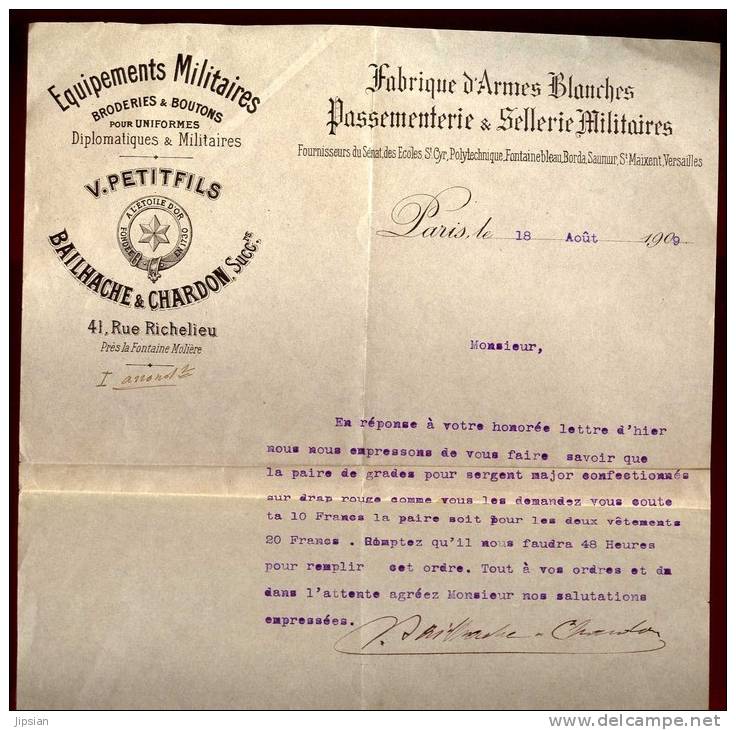 Equipements Militaires
BRODERIES & BOUTONS
POUR UNIFORMES
Diplomatiques & Militaires
V. PETITFILS
A L'ETOILE D'OR
FONDÉE EN 1730
BAILHACHE & CHARDON, Succ.rs
41, Rue Richelieu
Près la Fontaine Molière
I arrondt
Fabrique d'Armes Blanches
Passementerie & Sellerie Militaires
Fournisseurs du Sénat, des Ecoles St Cyr, Polytechnique, Fontainebleau, Borda, Saumur, St Maixent, Versailles
Paris, le 18 Août 1909
Monsieur,
En réponse à votre honorée lettre d'hier
nous nous empressons de vous faire savoir que
la paire de grades pour sergent major confectionnés
sur drap rouge comme vous les demandez vous coute
ta 10 Francs la paire soit pour les deux vêtements
20 Francs . Comptez qu'il nous faudra 48 Heures
pour remplir cet ordre. Tout à vos ordres et dn
dans l'attente agréez Monsieur nos salutations
empressées.
Bailhache & Chardon
jipsian
© delcampe.net